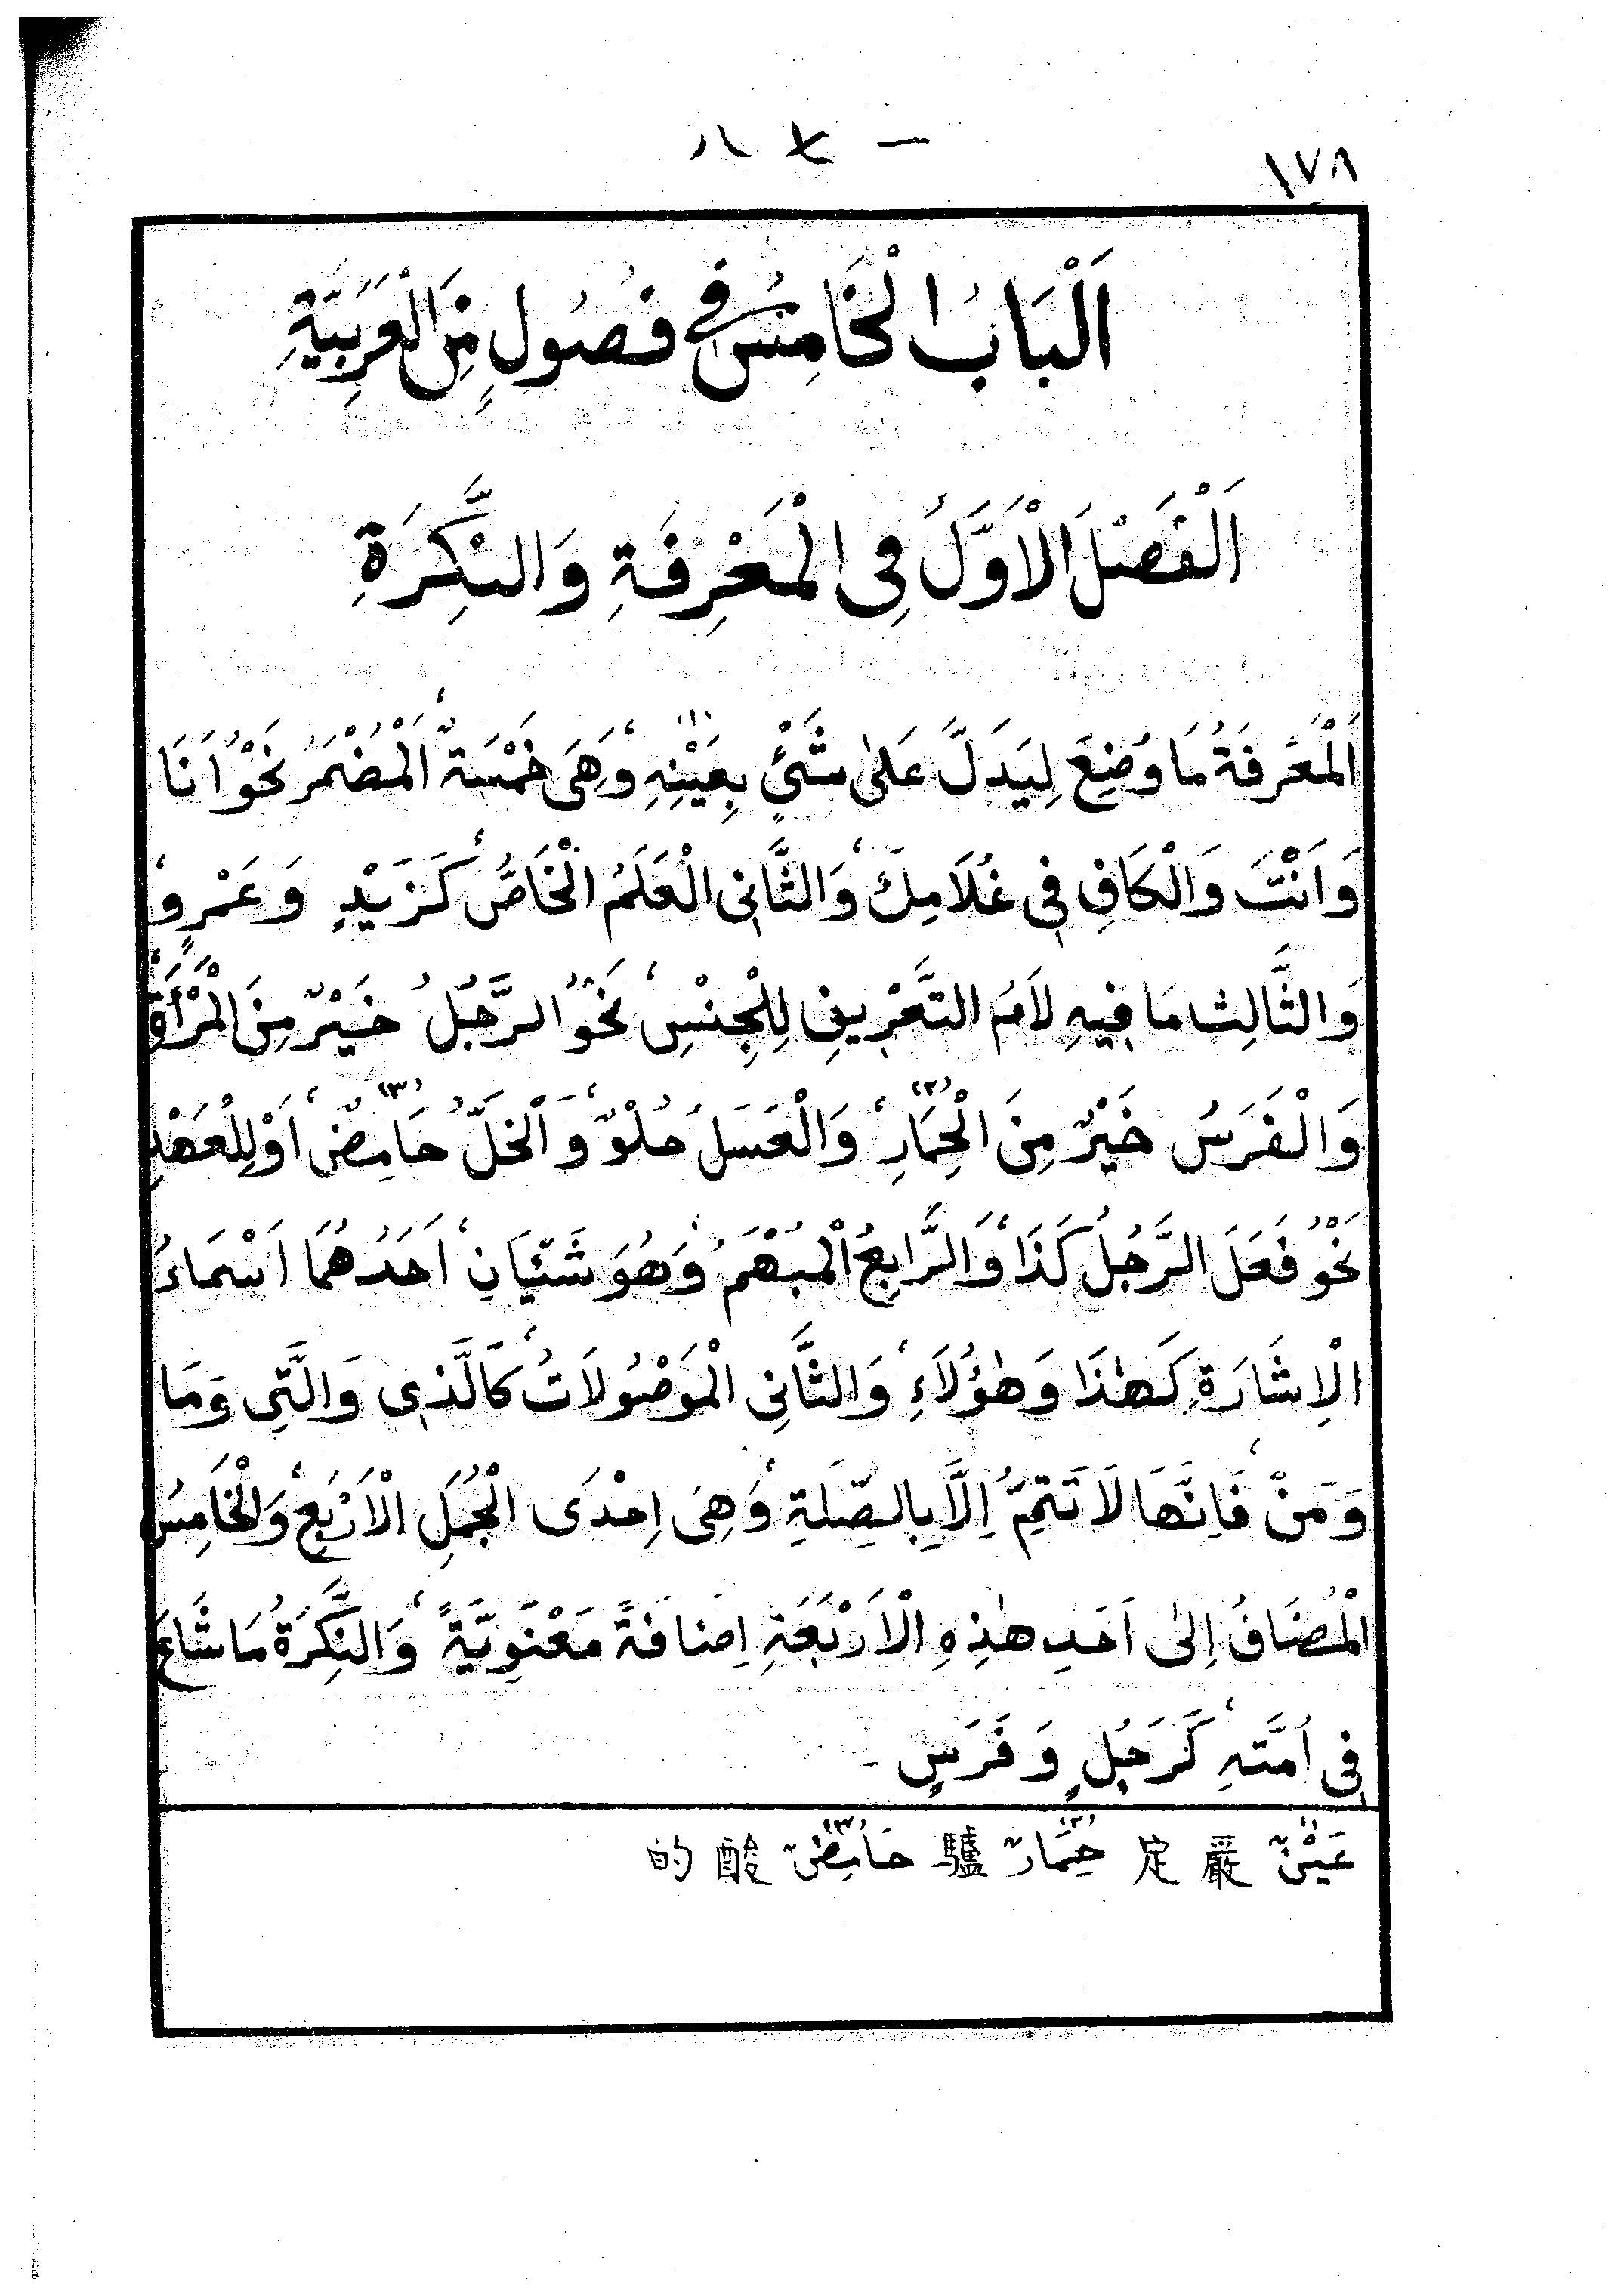 ١٧٨
اَلْبَابُ الْخَامِسُ فِي فُصُولٍ مِنَ الْعَرَبِيَّةِ
اَلْفَصْلُ الْاَوَّلُ فِى الْمَعْرِفَةِ وَالنَّكِرَةِ
اَلْمَعْرِفَةُ مَا وُضِعَ لِيَدَلَّ عَلٰى شَىْءٍ بِعَيْنِهِ (١) وَهِىَ خَمْسَةٌ اَلْمُضْمَرُ نَحْوُ اَنَا
وَاَنْتَ وَالْكَافِ فِى غُلَامِكَ، وَالثَّانِى الْعَلَمُ الْخَاصُّ كَزَيْدٍ وَعَمْرٍو،
وَالثَّالِثُ مَا فِيهِ لَامُ التَّعْرِيفِ لِلْجِنْسِ، نَحْوُ الرَّجُلُ خَيْرٌ مِنَ الْمَرْأَةِ،
وَالْفَرَسُ خَيْرٌ مِنَ الْحِمَارِ (٢)، وَالْعَسَلُ حُلْوٌ، وَالْخَلُّ حَامِضٌ (٣)، اَوْ لِلْعَهْدِ
نَحْوُ فَعَلَ الرَّجُلُ كَذَا، وَالرَّابِعُ الْمُبْهَمُ، وَهُوَ شَيْئَانِ، اَحَدُهُمَا اَسْمَاءُ
الْاِشَارَةِ كَهٰذَا وَهٰؤُلَاءِ، وَالثَّانِى الْمَوْصُولَاتُ، كَالَّذِى وَالَّتِى وَمَا
وَمَنْ، فَاِنَّهَا لَا تَتِمُّ اِلَّا بِالصِّلَةِ، وَهِىَ اِحْدَى الْجُمَلِ الْاَرْبَعِ، وَالْخَامِسُ
الْمُضَافُ اِلٰى اَحَدِ هٰذِهِ الْاَرْبَعَةِ اِضَافَةً مَعْنَوِيَّةً، وَالنَّكِرَةُ مَا شَاعَ
فِى اُمَّتِهِ، كَرَجُلٍ وَفَرَسٍ -
(١) عَيْنٌ 嚴定 (٢) حِمَارٌ 驢 (٣) حَامِضٌ 酸的